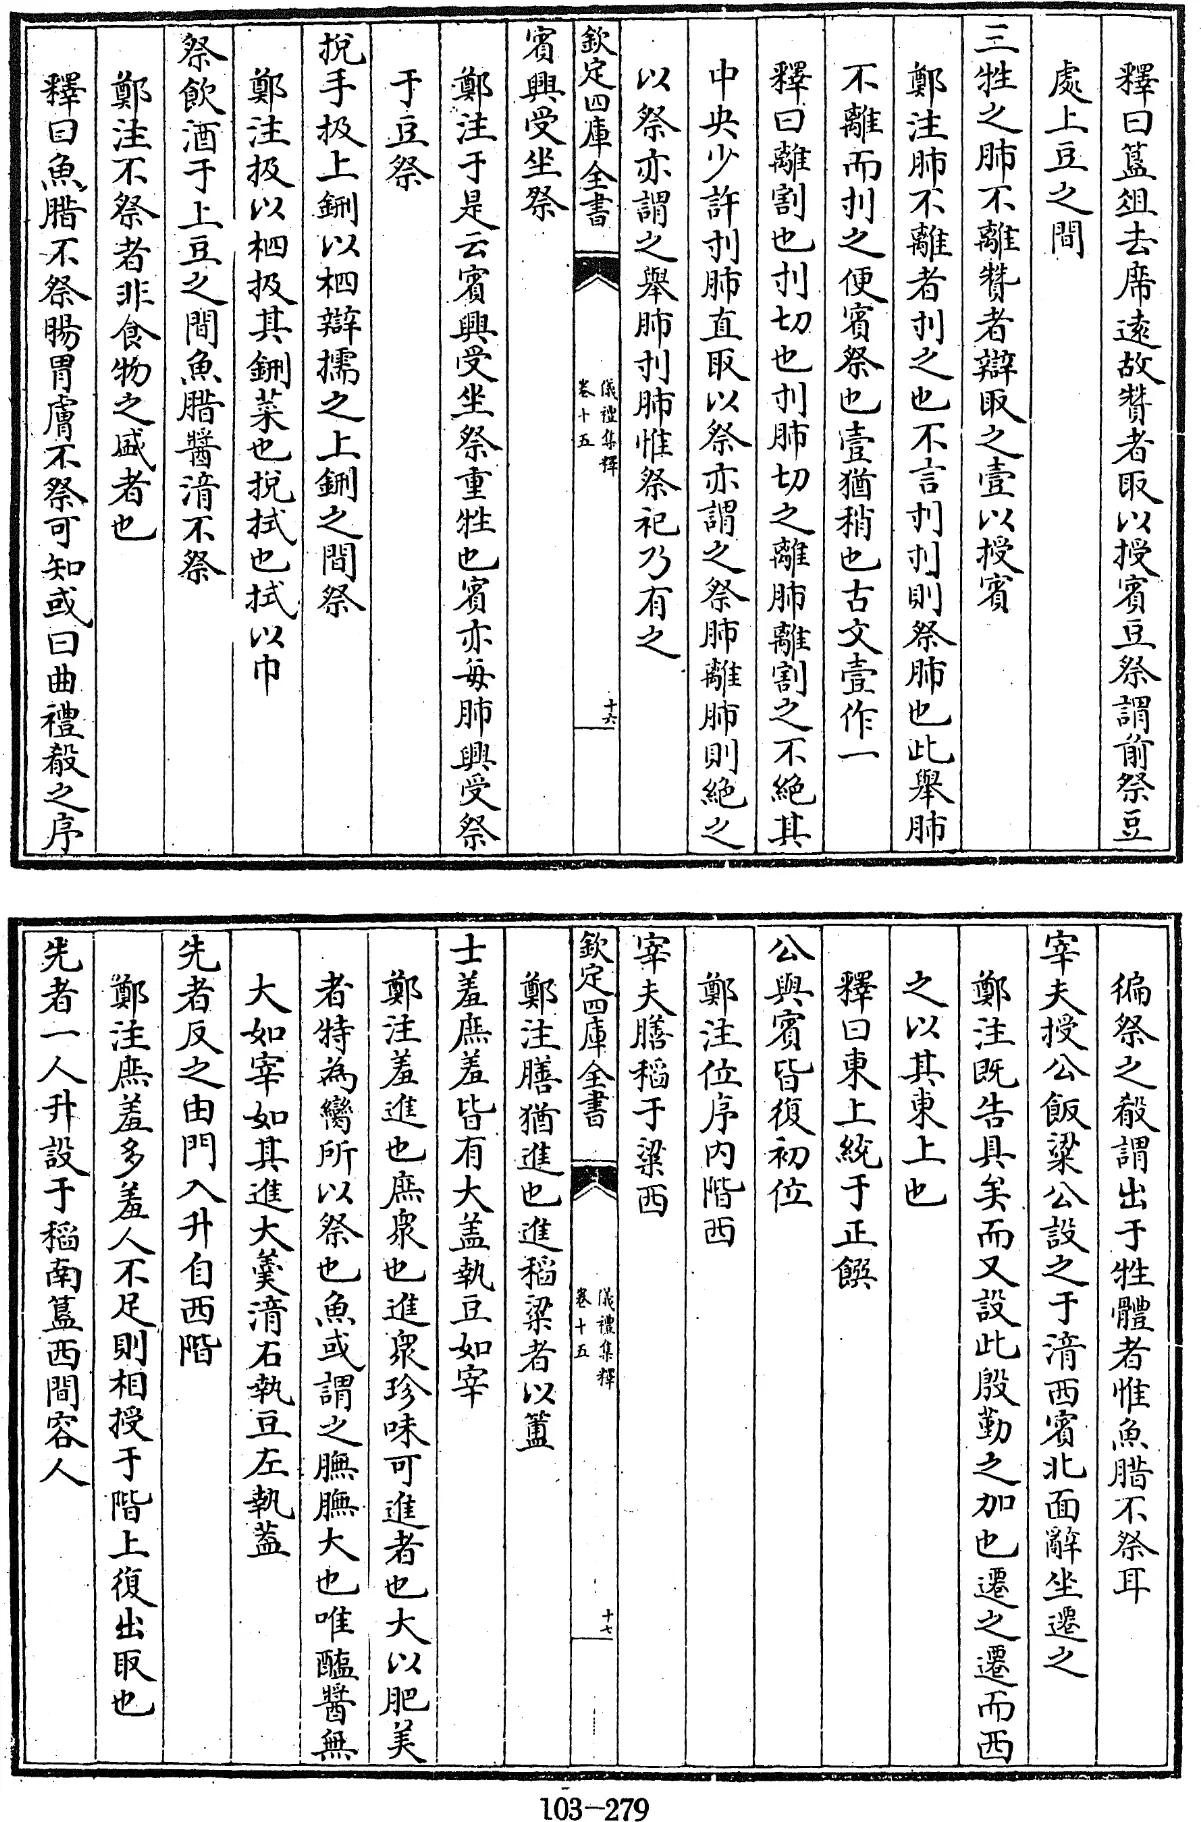 釋曰簋俎去席遠故贊者取以授賓豆祭謂前祭豆
處上豆之間
三牲之肺不離贊者辯取之壹以授賓
鄭注肺不離者刌之也不言刌刌則祭肺也此舉肺
不離而刌之便賓祭也壹猶稍也古文壹作一
釋曰離割也刌切也刌肺切之離肺離割之不絶其
中央少許刌肺直取以祭亦謂之祭肺離肺則絶之
以祭亦謂之舉肺刌肺惟祭祀乃有之
欽定四庫全書
儀禮集釋
卷十五
十六
賓興受坐祭
鄭注于是云賓興受坐祭重牲也賓亦每肺興受祭
于豆祭
挩手扱上鉶以柶辯擩之上鉶之間祭
鄭注扱以柶扱其鉶菜也挩拭也拭以巾
祭飲酒于上豆之間魚腊醬湆不祭
鄭注不祭者非食物之盛者也
釋曰魚腊不祭腸胃膚不祭可知或曰曲禮殽之序
徧祭之殽謂出于牲體者惟魚腊不祭耳
宰夫授公飯粱公設之于湆西賓北面辭坐遷之
鄭注既告具矣而又設此殷勤之加也遷之遷而西
之以其東上也
釋曰東上統于正饌
公與賓皆復初位
鄭注位序内階西
宰夫膳稻于粱西
欽定四庫全書
儀禮集釋
卷十五
十七
鄭注膳猶進也進稻粱者以簠
士羞庶羞皆有大蓋執豆如宰
鄭注羞進也庶衆也進衆珍味可進者也大以肥美
者特為臠所以祭也魚或謂之膴膴大也唯醢醬無
大如宰如其進大羹湆右執豆左執蓋
先者反之由門入升自西階
鄭注庶羞多羞人不足則相授于階上復出取也
先者一人升設于稻南簋西間容人
103-279